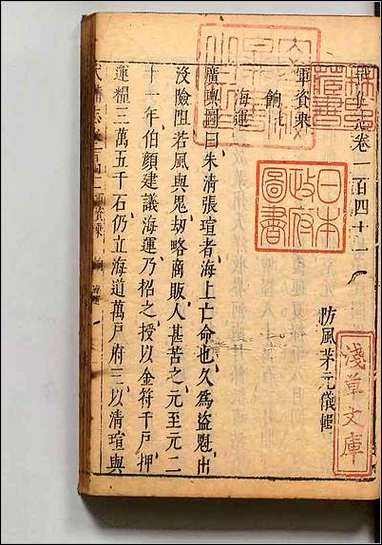 武備志卷一百四十一
防風茅元儀輯
軍資乘
餉七
海運
廣輿圖曰朱清張瑄者海上亡命也久爲盜魁出
没險阻若風與鬼刼略商販人甚苦之元至元二
十一年伯顏建議海運乃招之授以金符千戶押
運糧三萬五千石仍立海道萬戶府三以清瑄與
日本
政府
圖書
淺草文庫